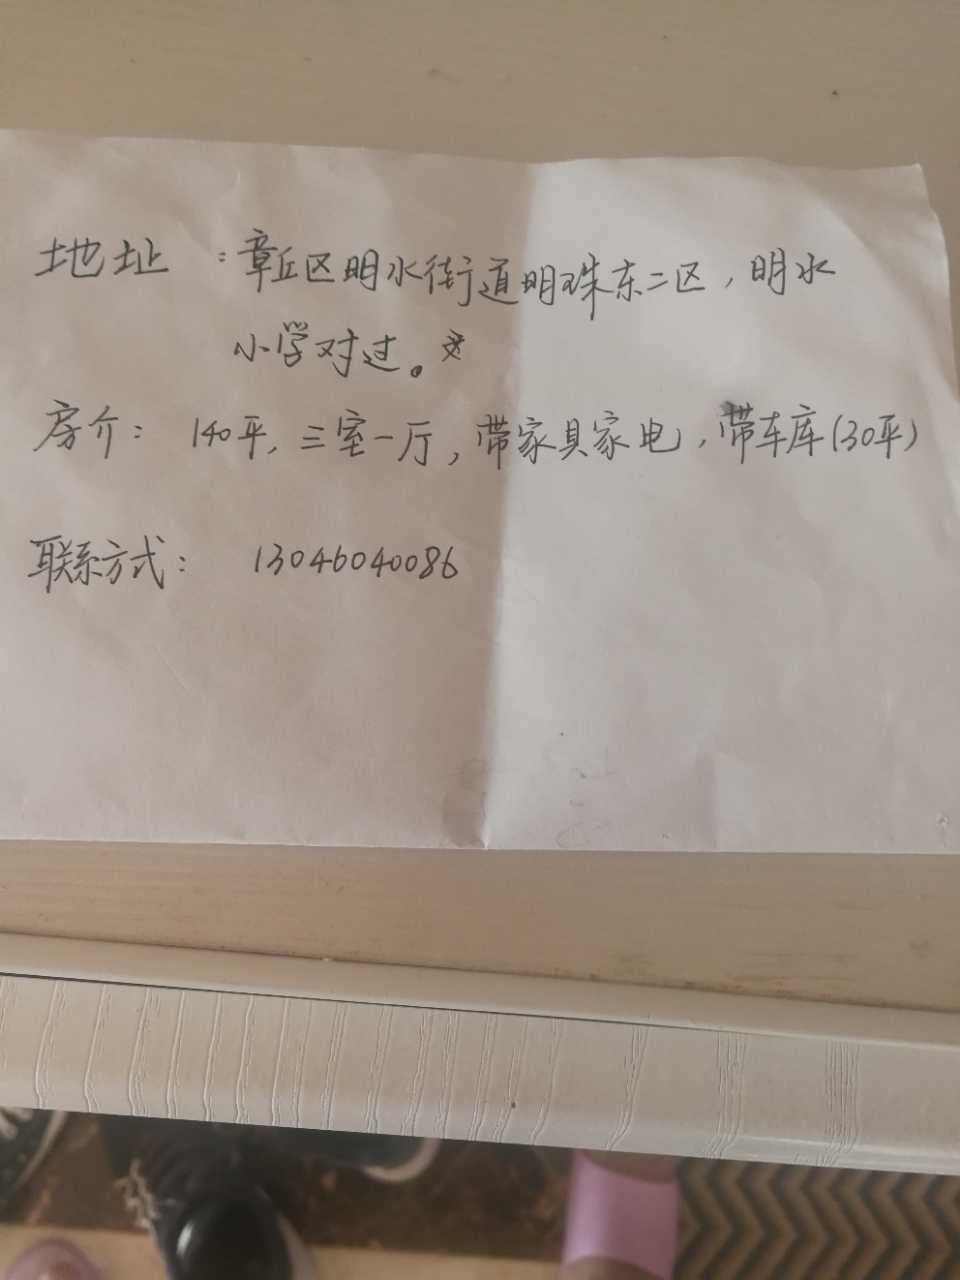 地址：章丘区明水街道明珠东二区，明水
小学对过。
房介：140平，三室一厅，带家具家电，带车库(30平)
联系方式：13046040086